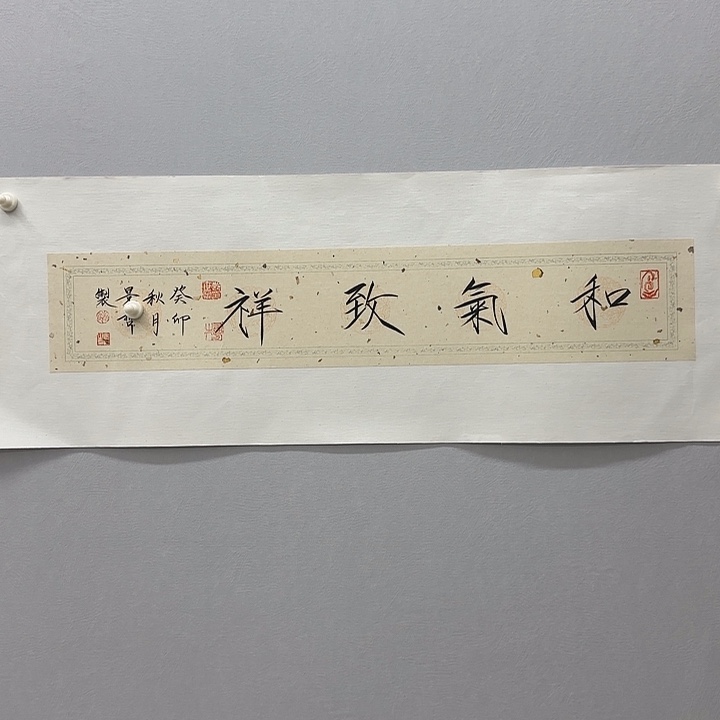 和氣致祥
癸卯
秋月
製